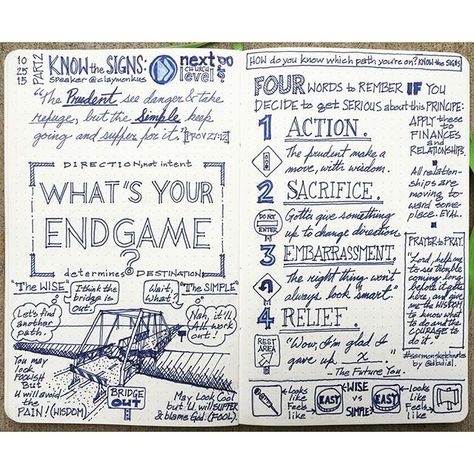 10
25
15
PART 2
KNOW the SIGNS:
speaker @claymonkus
next level CHURCH
"The Prudent see danger & take
refuge, but the Simple keep
going and suffer for it." [PROV 27:12]
DIRECTION, not intent
WHAT'S YOUR
ENDGAME
?
determines DESTINATION
"The WISE"
I think the
bridge is
out.
Wait,
What?
"The SIMPLE"
Let's find
another
path.
Nah, it'll
ALL work
out!
You may
look
FOOLISH
But
U will avoid
the
PAIN! (WISDOM)
BRIDGE
OUT
May Look Cool
but U. will SUFFER
& blame God. (FOOL).
HOW do you know which path you're on? KNOW the SIGNS
FOUR WORDS to REMBER IF YOU
DECIDE to get SERIOUS about this PRINCIPE:
1 ACTION.
The prudent make a
move, with wisdom.
2 SACRIFICE.
DO NOT
ENTER
Gotta give something
up to change direction
3 EMBARRASSMENT.
The right thing won't
always look "smart."
4 RELIEF.
REST
AREA
"Wow, I'm glad I
gave up, x ."
- The Future You.
APPLY these
to
FINANCES
and
RELATIONSHIPS.
All relation-
ships are
moving to
ward some
place. EVAL.
PRAYER to PRAY:
"Lord, help me
to see trouble
coming long
before it gets
here, and give
me the WISDOM
to know what
to do and the
COURAGE to
do it."
#sermonsketchnotes
Looks
Like
Feels
like
EASY
WISE
vs
SIMPLE
EASY
Looks
Like
Feels
like